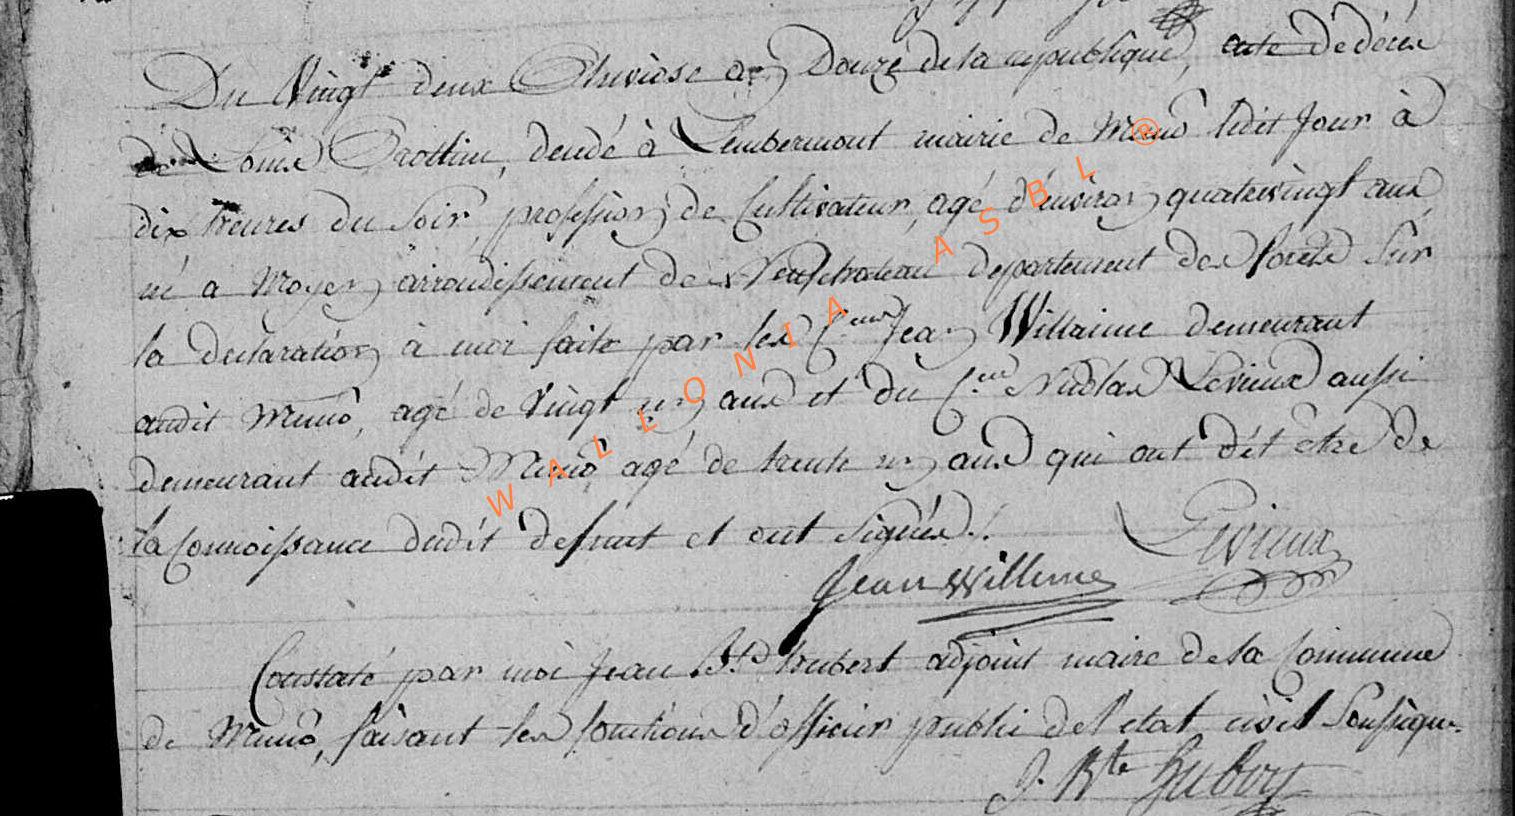 Du Vingt deux Pluviose an Douze de la republique, acte de décès
de Louis Trottin, décédé à Lambermont mairie de Muno ledit Jour à
dix heures du Soir, profession de Cultivateur, agé d'environ quatrevingt ans
né a Moyen arrondissement de Neufchateau departement des forets Sur
la declaration à moi faite par les C.en Jean Willaime demeurant
audit Muno, agé de Vingt un ans et du C.en Nicolas Levieux aussi
demeurant audit Muno, agé de trente un ans qui ont dit être de
la Connoissance dudit defunt et ont Signés./.
Levieux
Jean Willeme
Constaté par moi Jean B.te hubert adjoint maire de la Commune
de Muno, faisant les fonctions d'officier public de l'etat civil Soussigné.
J. Bte
WALLONIA ASBL ®